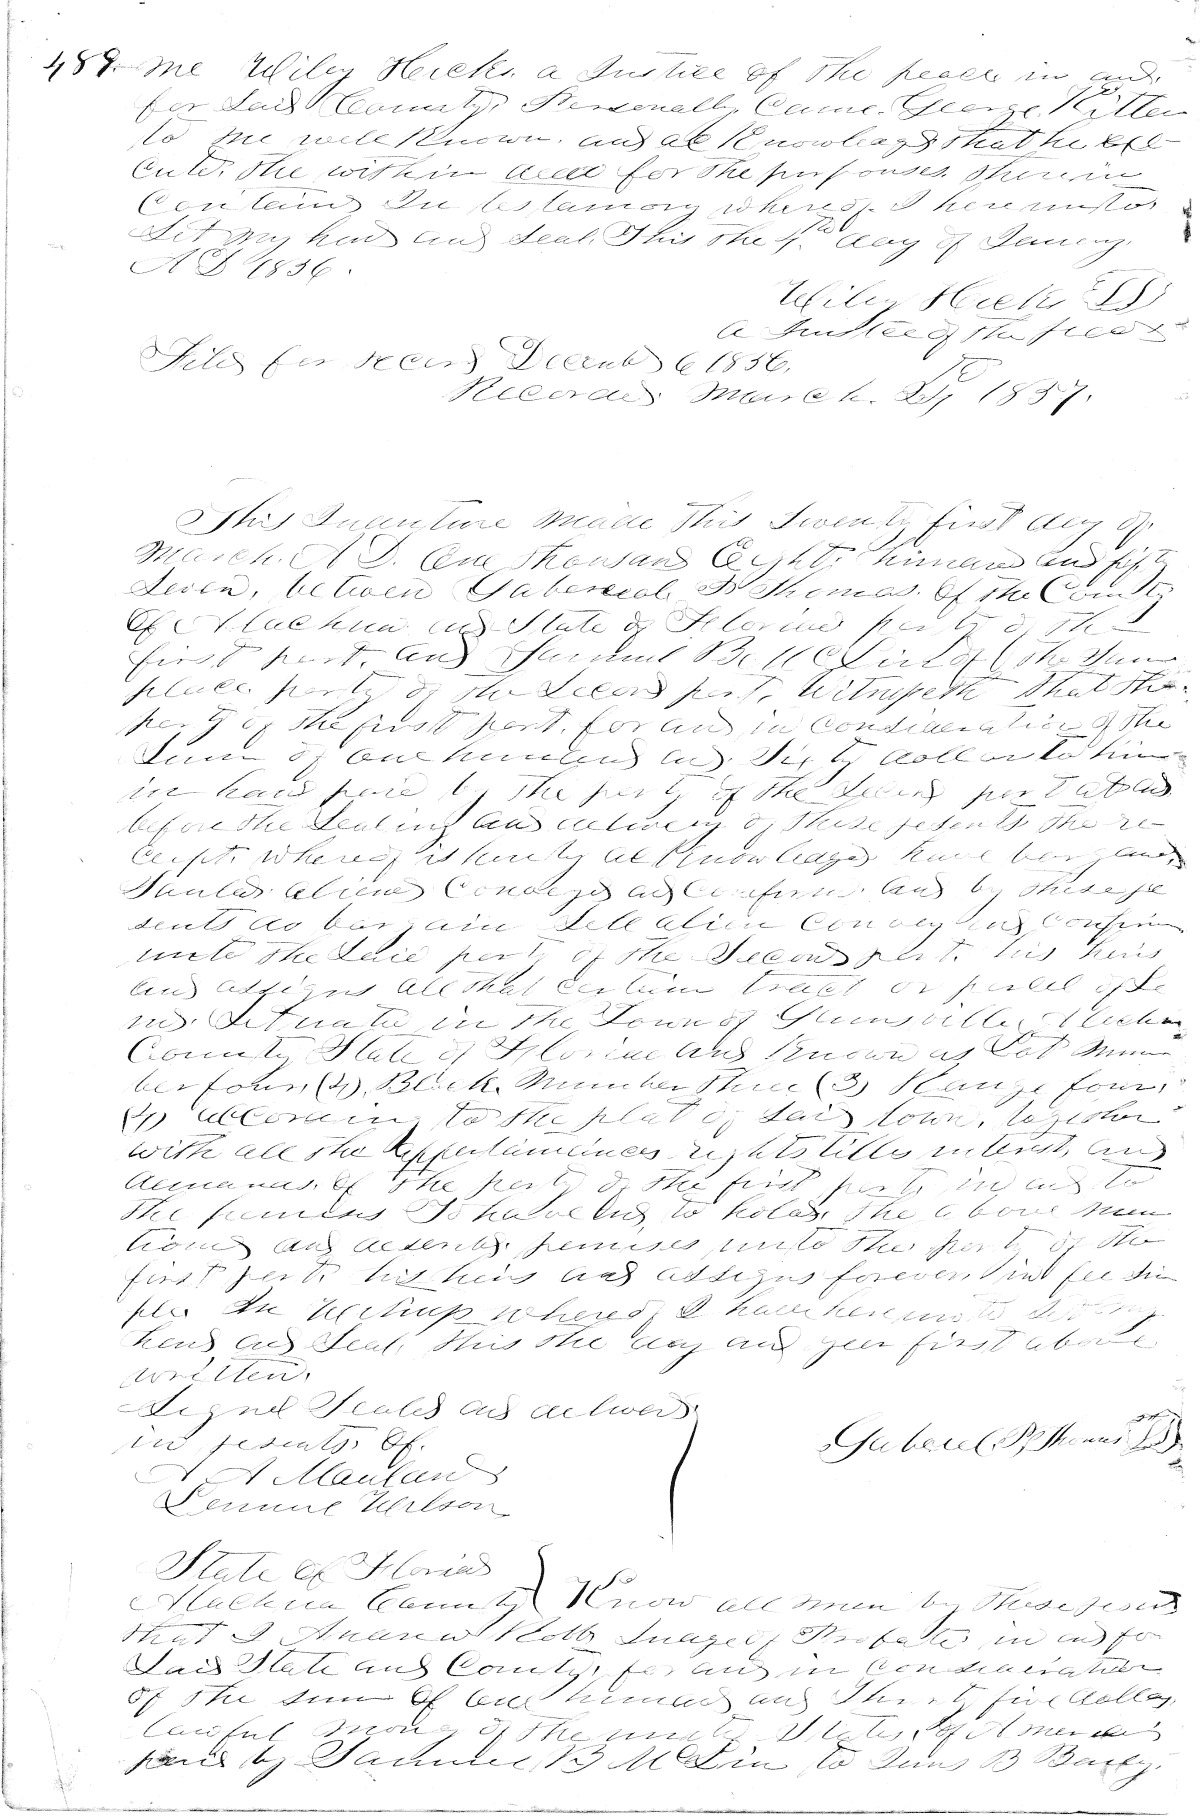 489. me Wiley Hicks a Justice of the peace in and
for said County, Personally Came George Kitten
to me well Known. and acknowledged that he exe
cuted the within deed for the purposes therein
Contained In testamony whereof I here unto
Set my hand and Seal. This the 4th day of Janury.
A D 1836.
Wiley Hicks
a Justice of the peace
Filed for record December 6 1856.
Recorded March. 1857.
This Indenture made this Twenty first day of
March. A D. One thousand Eight hundred and fifty
Seven, between Gabereial Thomas. of the County
Of Alachua and State of Florida party of the
first part. and Samuel B. McLin of (the Same
place party of the Second part, Witnesseth that the
party of the first part. for and in consideration of the
Sum of one hundred and Sixty dollars to him
in hand paid by the party of the Second part at and
before the Sealing and delivery of these presents the re
ceipt whereof is hereby acknowledged have bargained
aliened Conveyed and Confirmed and by these pre
sents do bargain Sell alien convey and confirm
unto the said party of the Second part. his heirs
and assigns all that certain tract or parcel of la
nd. Situate in the Town of Gainsville Alachua
County State of Florida and Known as Lot Num
ber four, (4), Block Number Three (3) Range four,
(4) according to the plat of said town, together
with all the Appertainances rights titles interest, and
demands. Of the party of the first part, in and to
the premises To have and to hold. the above men
tioned and described premises unto the party of the
first part. his heirs and assigns forever in fee Sim
ple In Witness whereof I have hereunto Set my
hand and Seal, this the day and year first above
written.
Signed Sealed and delivered
in presents. Of.
Gaberel Thomas
Lemuel Wilson
State of Florida
Alachua County Know all men by these presents
that I Andrew Robb Judge of Probate in and for
Said State and County, for and in consideration
of the sum of one hundred and Thirty five dollars
lawful money of the united States, of America
paid by Samuel B McLin to B